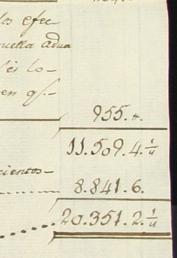 los efec
nuella Adua
lo-
en q/.
955.4.
11.509.4.1/4
cientos-
8.841.6.
20.351.2.1/4